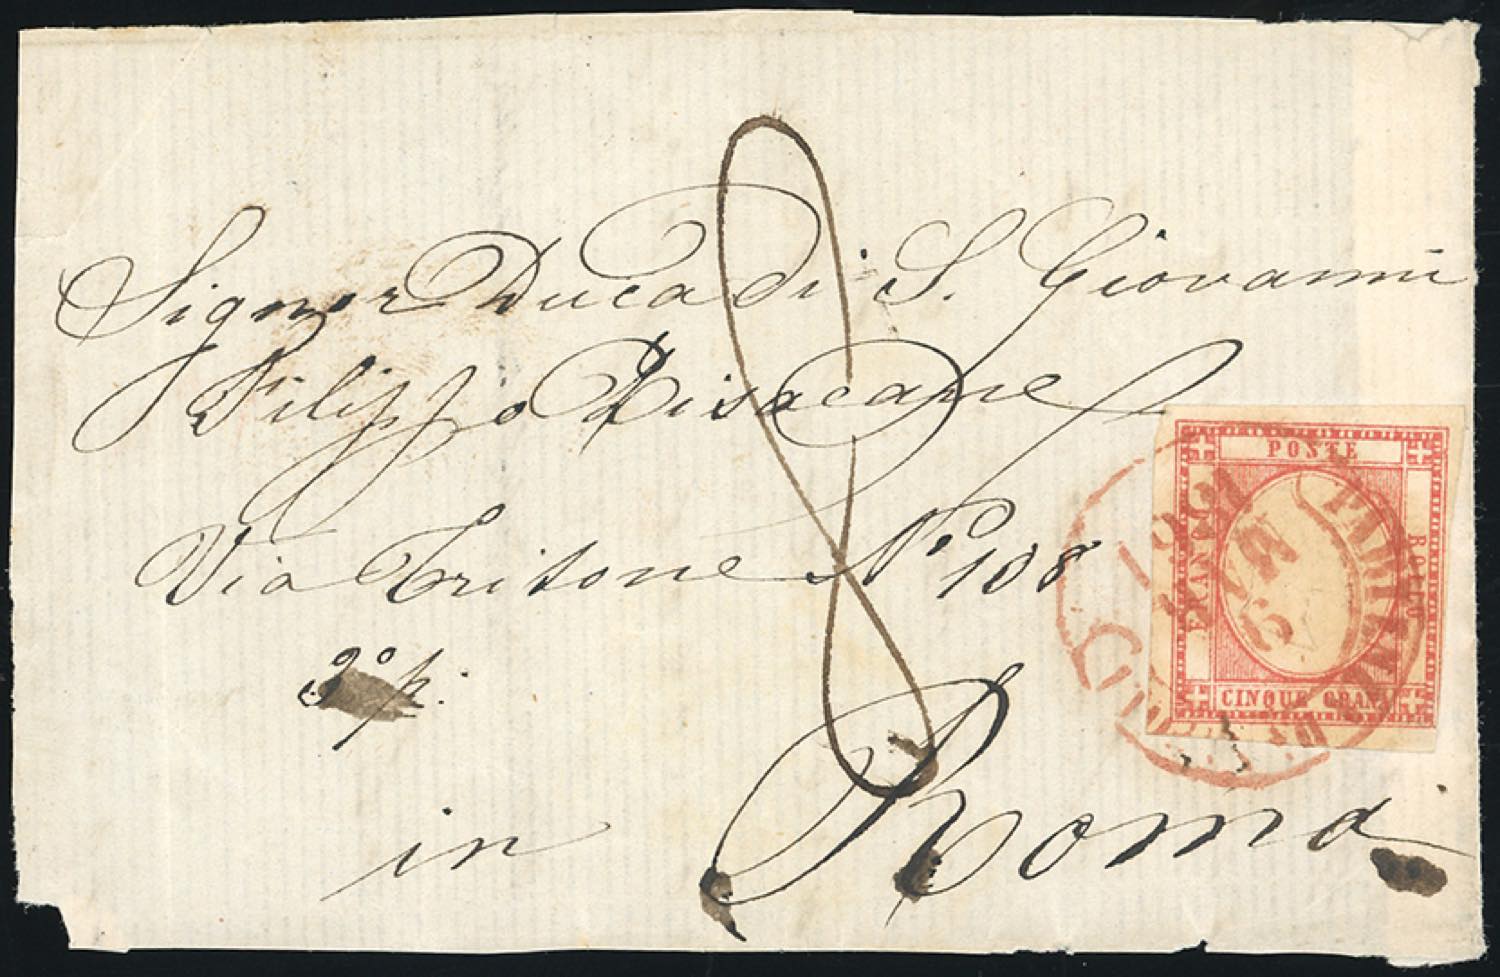 8
Signor Duca di S. Giovanni
Filippo Pisacane
Via Tritone N° 108
3° p.
in Roma
POSTE
FRANCO
BOLLO
CINQUE GRANA
PARTENZA